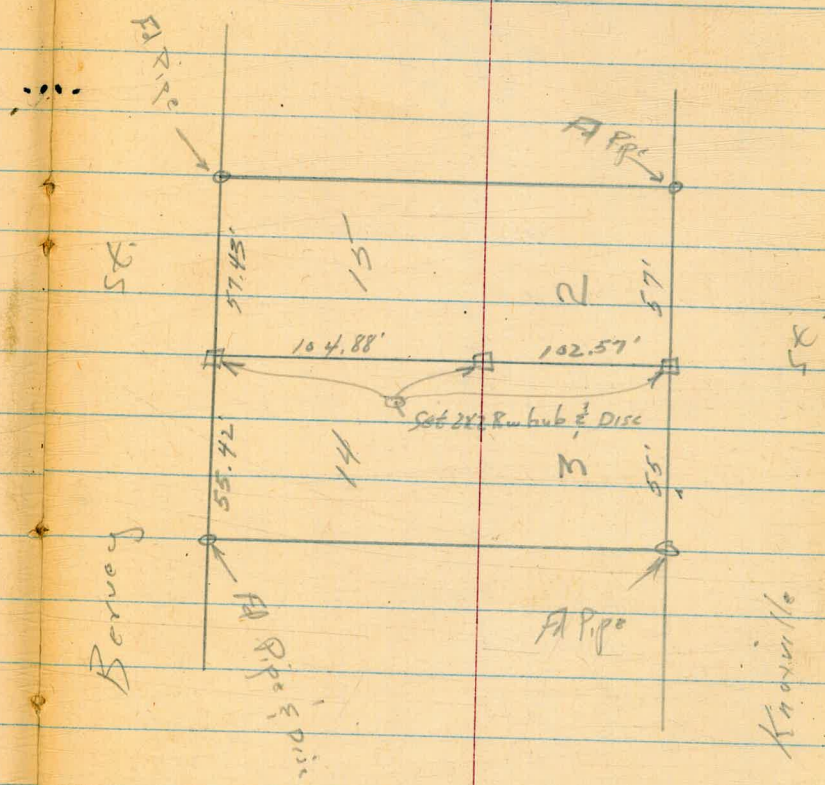 Fd Pipe
Fd Pipe
St.
57.43'
15
2
57'
104.88'
102.57'
St
Set 2x2 Rw hub & Disc
55.42'
14
3
55'
Fd Pipe & Disc
Fd Pipe
Knoxville